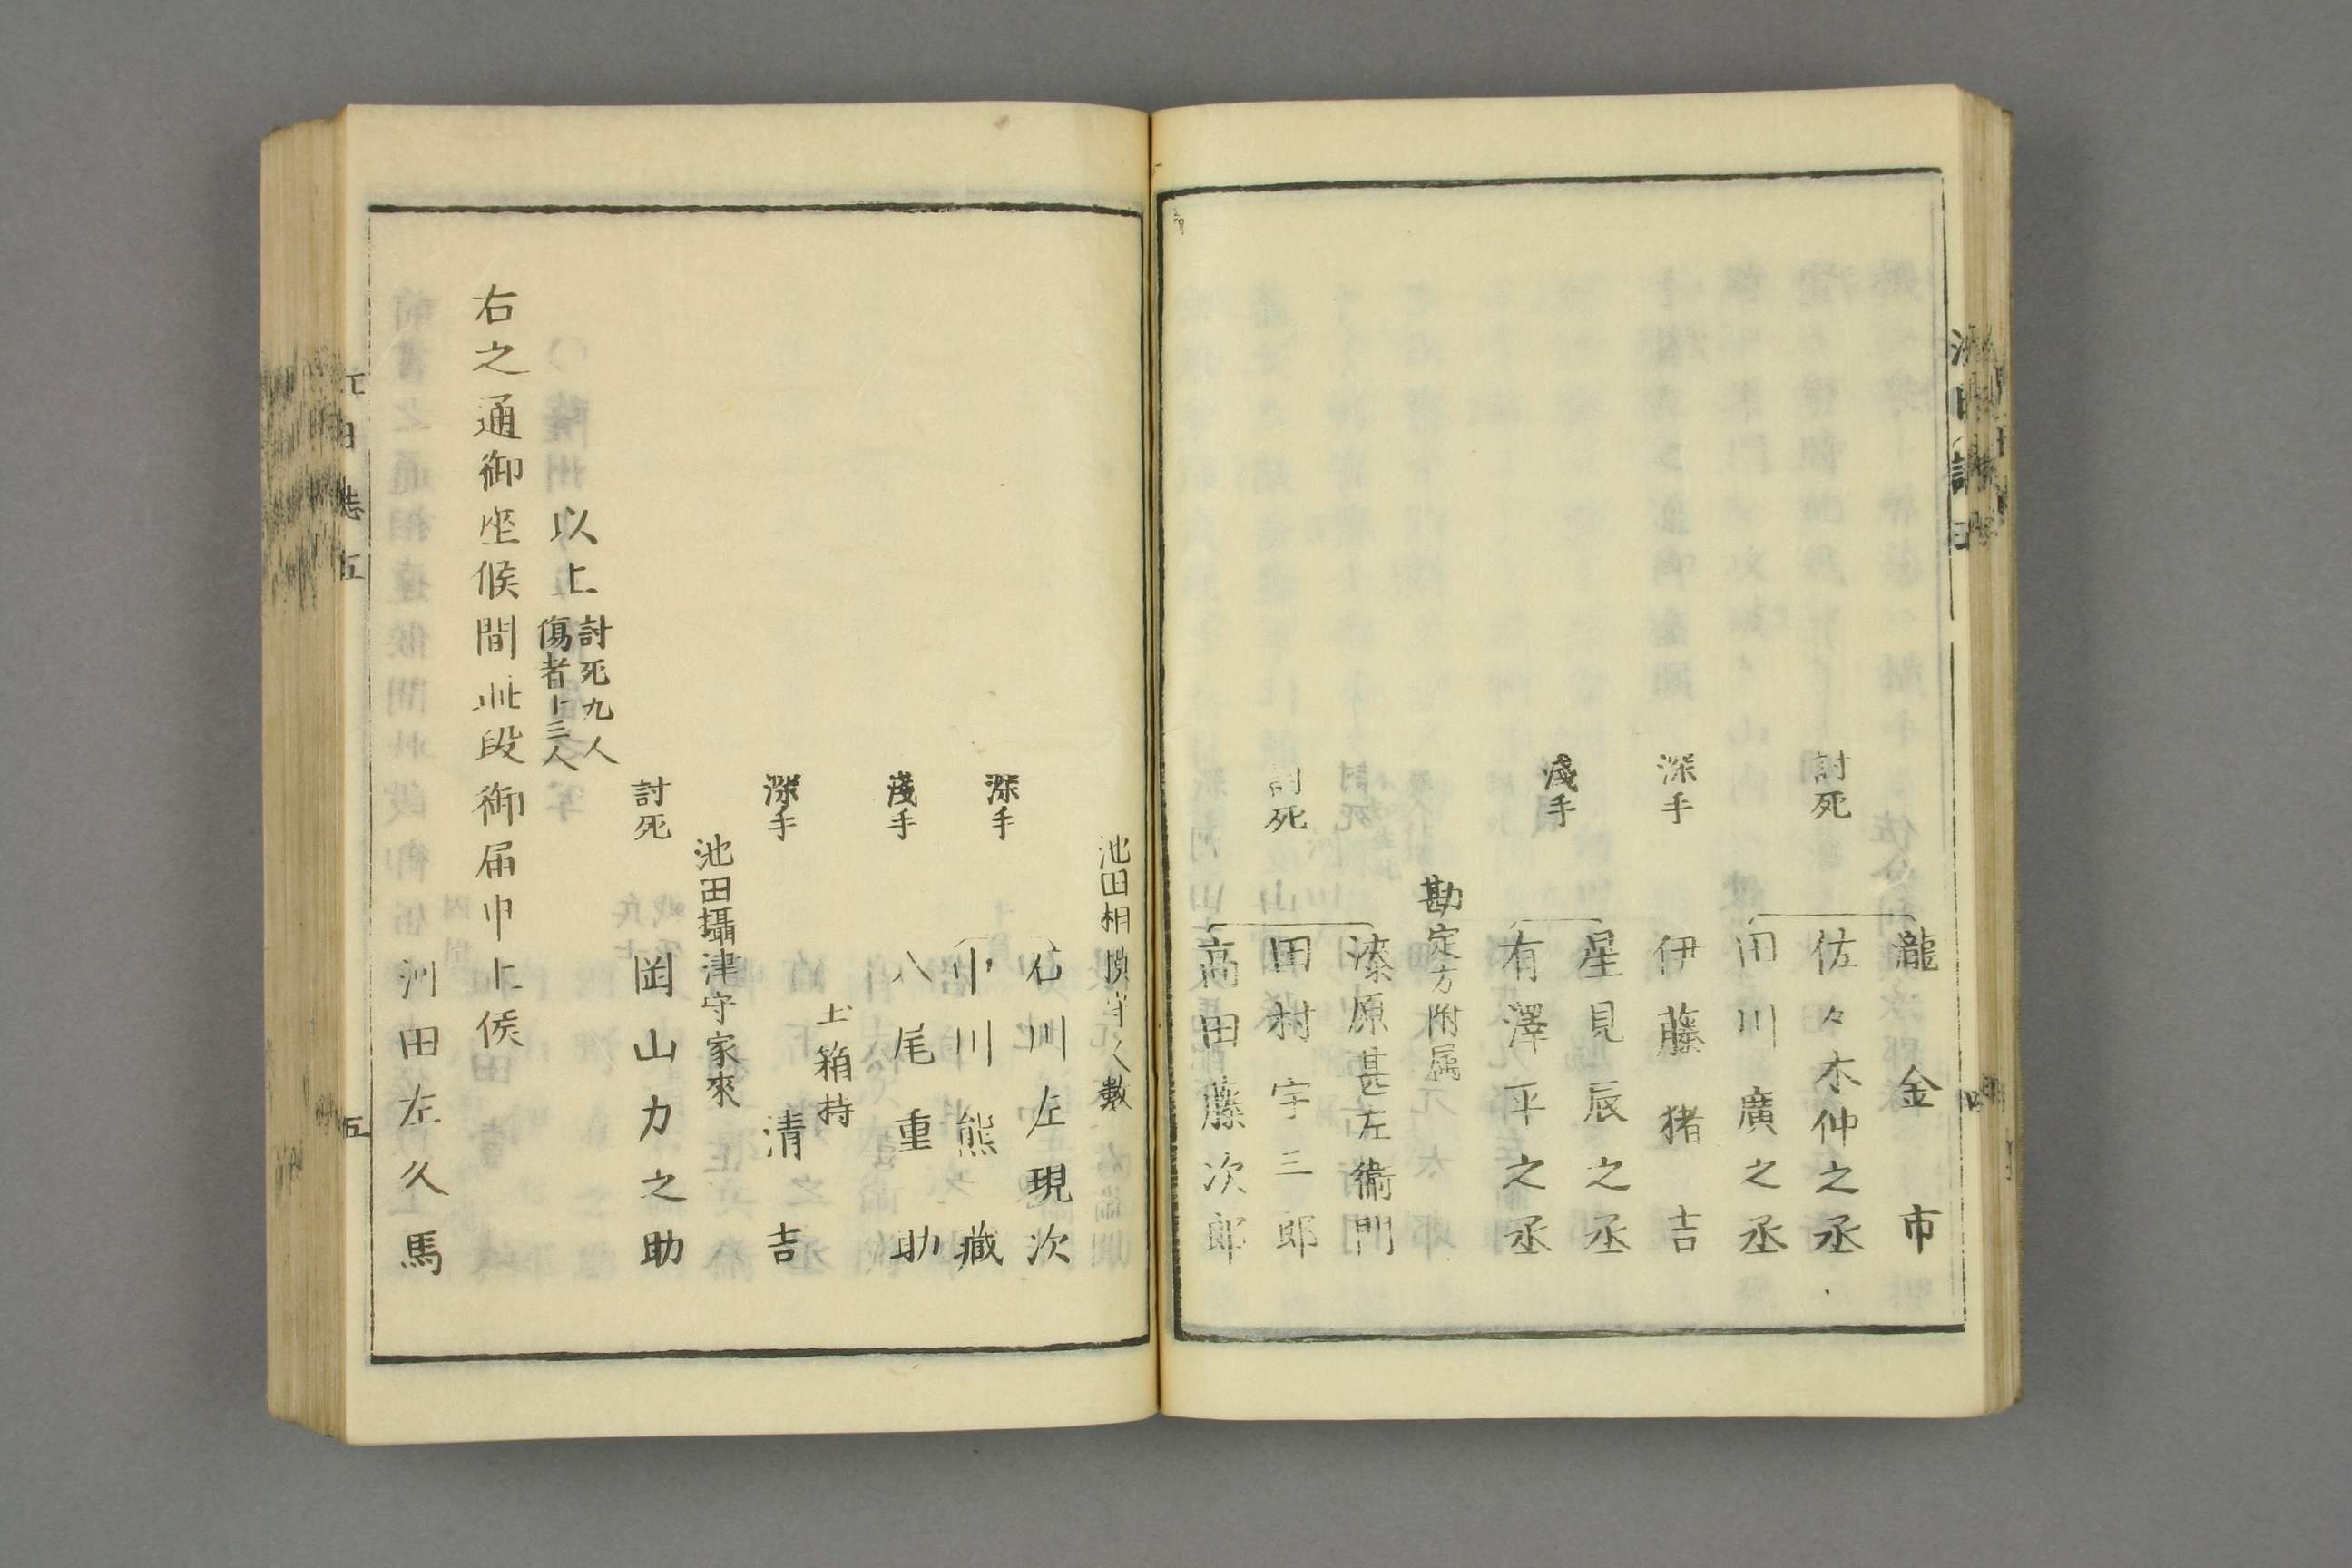 瀧金市
討死
佐々木仲之丞
田川廣之丞
深手
伊藤猪吉
淺手
星見辰之丞
有澤平之丞
勘定方附属
湊原甚左衞門
討死
田村宇三郎
高田藤次郎
池田相模守人數
深手
石川左現次
中川熊藏
淺手
八尾重助
上箱持
深手
清吉
池田攝津守家來
討死
岡山力之助
以上
討死九人
傷者十三人
右之通御座候間此段御届申上候
河田左久馬